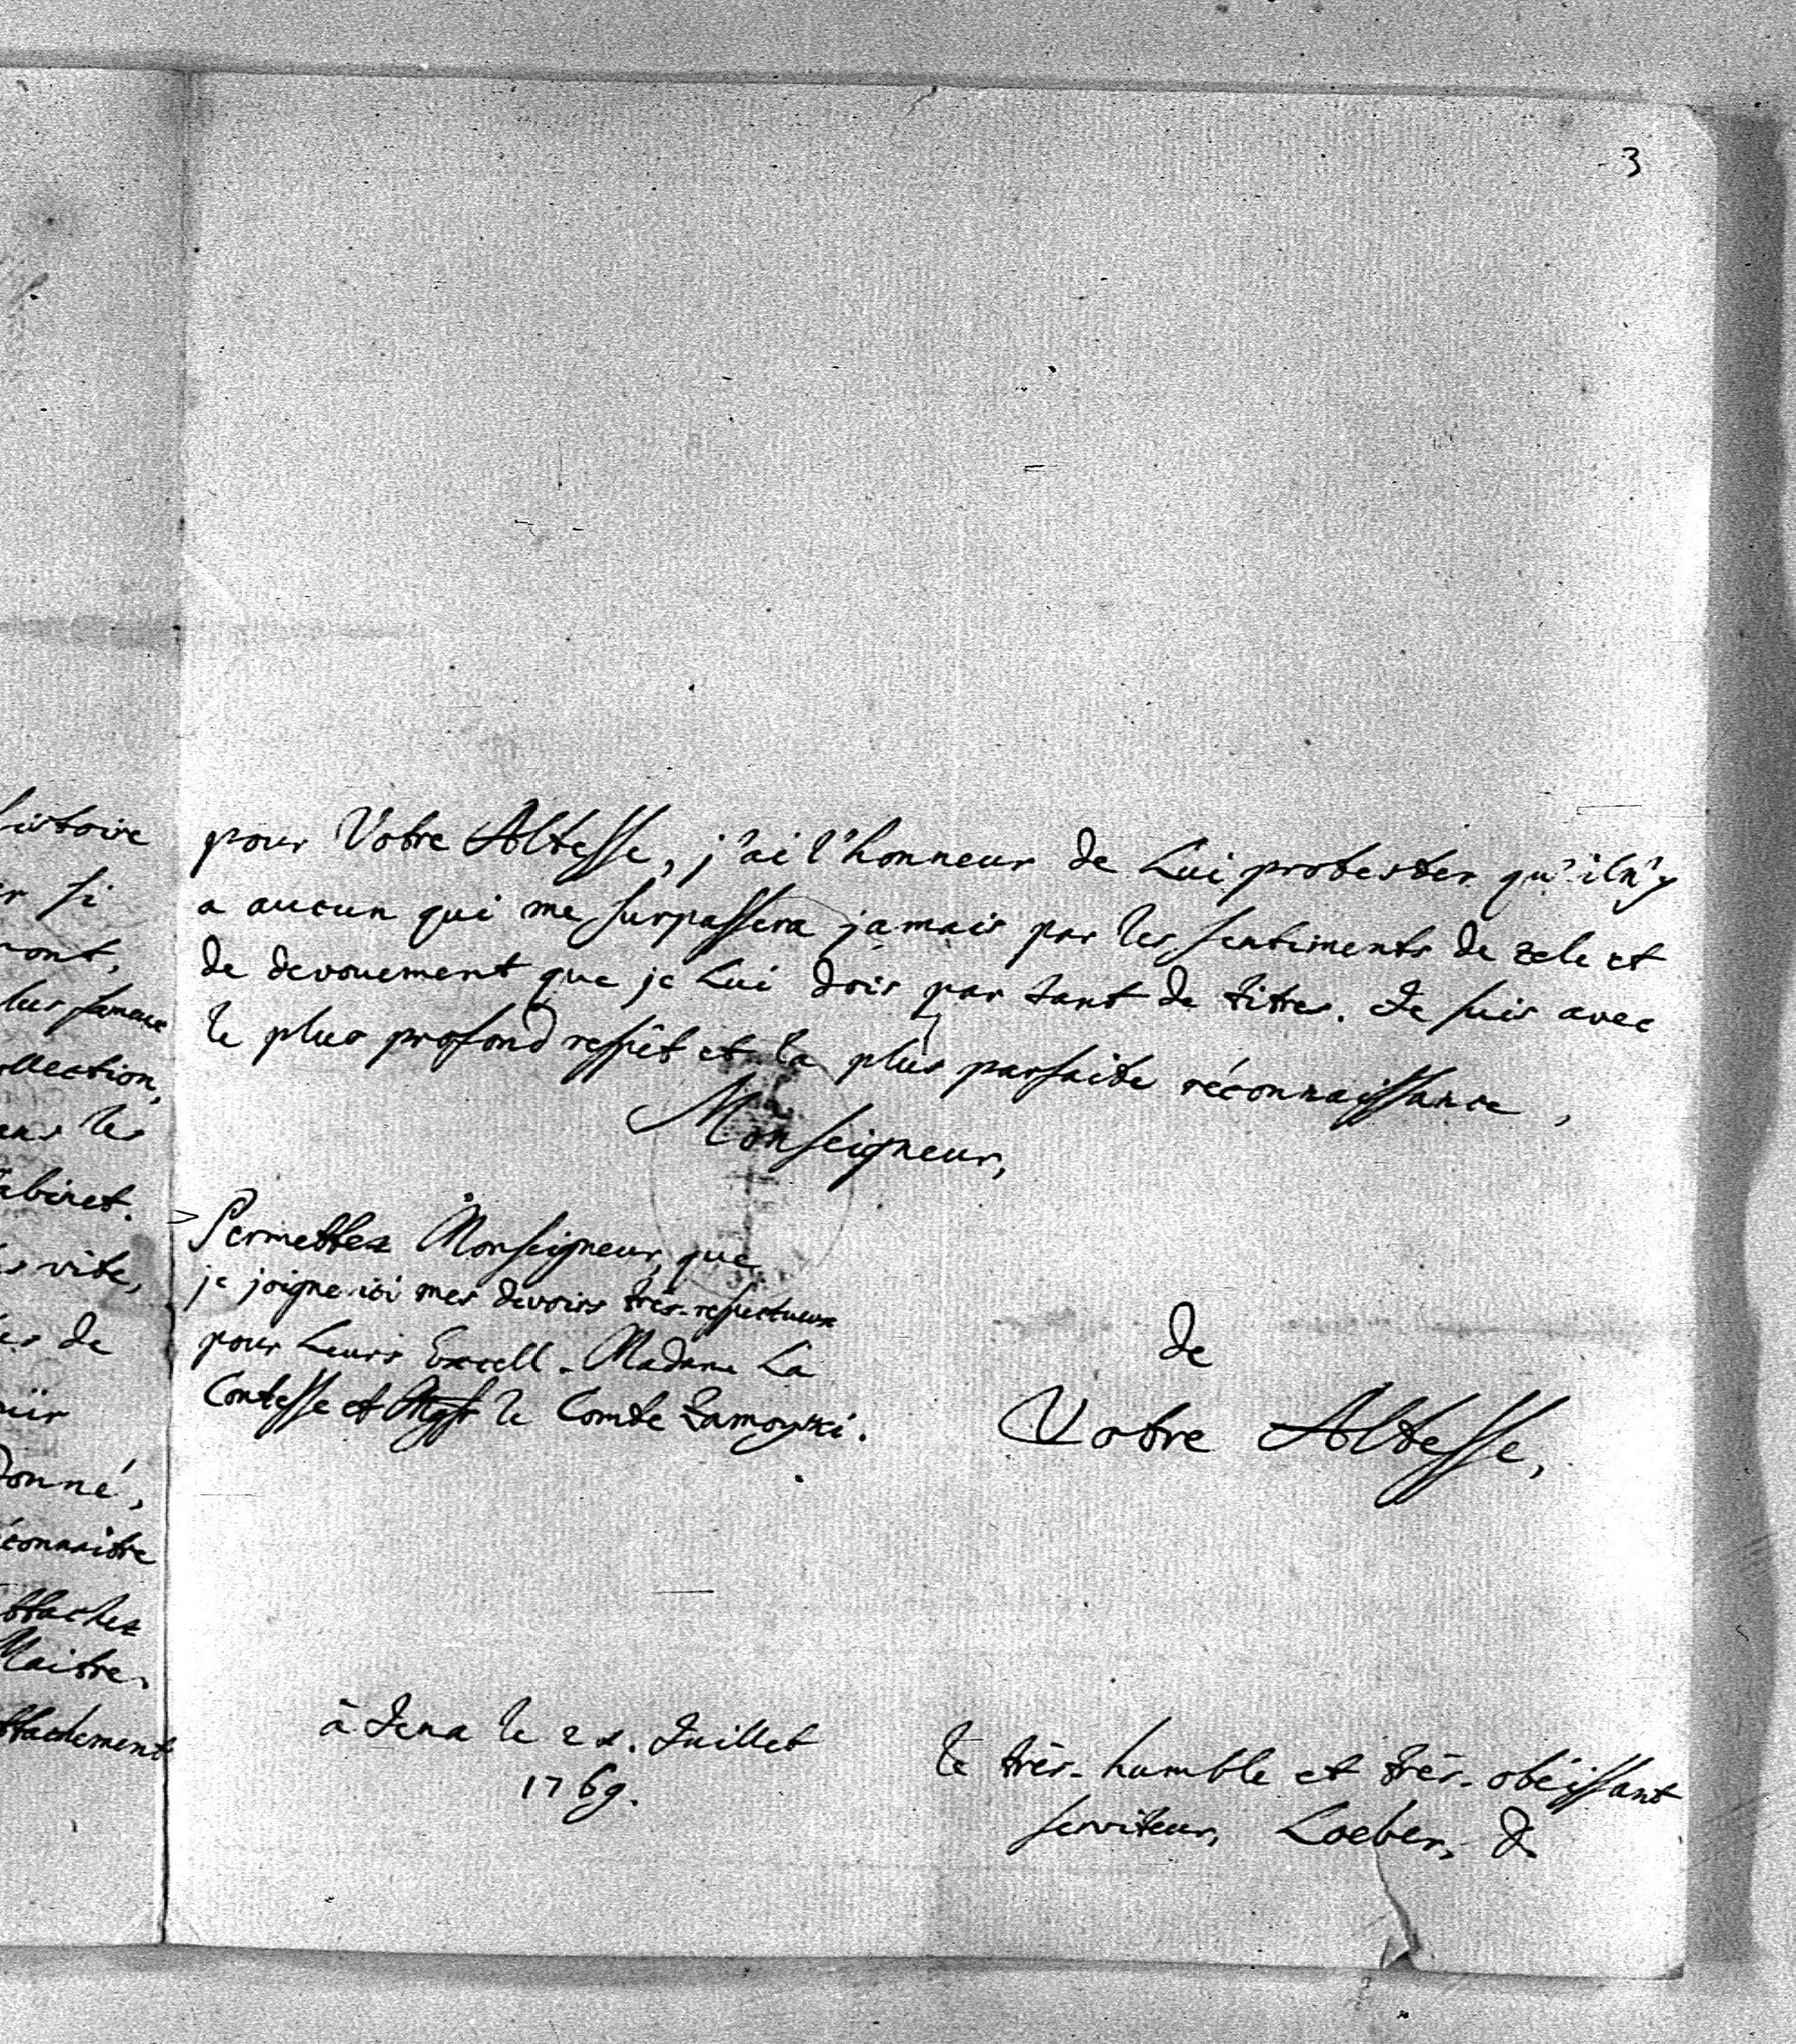 3
istoire
r si
ront,
lus fameux
ollection,
ans les
abinet.
s vite,
es de
uir
donné,
connaitre
ttachez
Maitre.
ttachement
pour Votre Altesse, j'ai l'honneur de Lui protester qu'il n'y
a aucun qui me surpassera jamais par les sentiments de zele et
de devouement que je Lui dois par tant de titres. Je suis avec
le plus profond respêt et la plus parfaite réconnaissance,
Monseigneur,
Permettez Monseigneur, que
je joigne ici mes devoirs très-respectueux
pour Leurs Excell. Madame La
Comtesse et le Comte Zamoyski.
de
Votre Altesse,
à Jena le 21. Juillet
1769.
le très-humble et très-obéissant
serviteur, Loeber, D